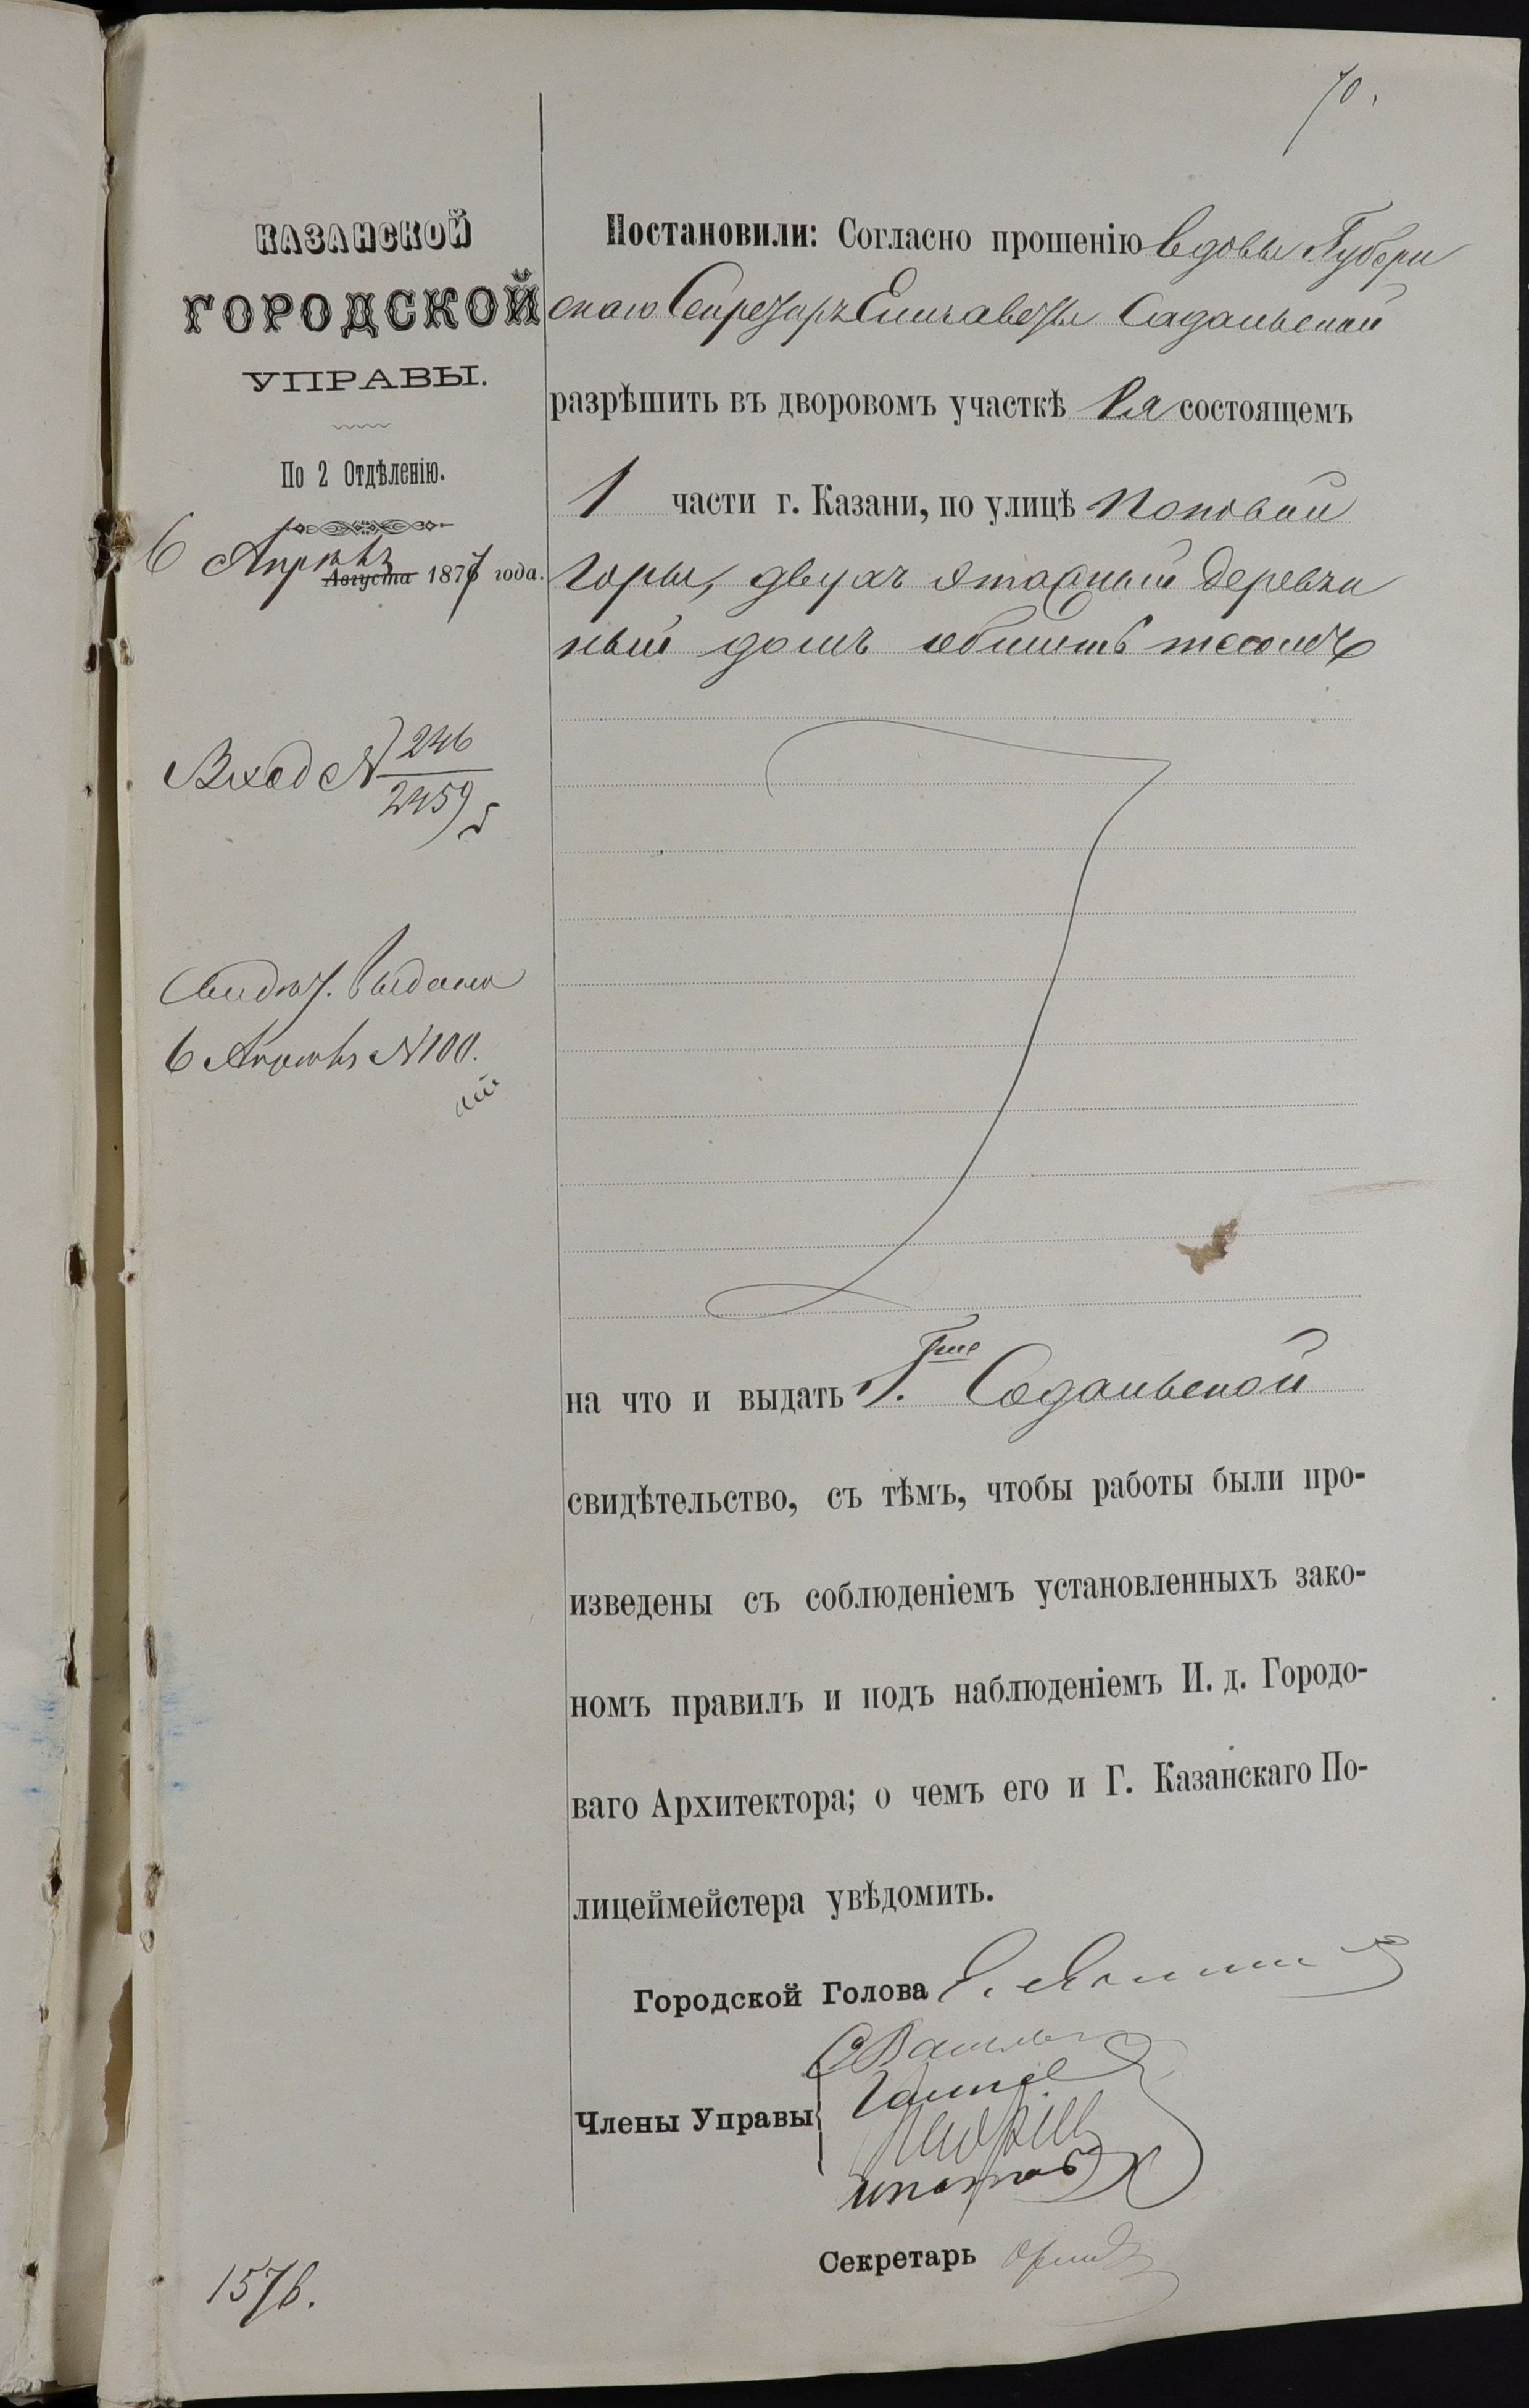 70.
КАЗАНСКОЙ
ГОРОДСКОЙ
УПРАВЫ.
По 2 Отдѣленію.
6 Апрѣль
Августа 1877 года.
Вход № 246
2459
Свидѣт. выдано
6 Апрѣль №100.
1576.
Постановили: Согласно прошенію вдовы Губерн
скаго Секретарь Елизаветы Садальской
разрѣшить въ дворовомъ участкѣ Ея состоящемъ
1 части г. Казани, по улицѣ Поповой
Горы, двухъ этажный деревян
ный домъ обшить тесомъ
на что и выдать Г.жѣ Садальской
свидѣтельство, съ тѣмъ, чтобы работы были про-
изведены съ соблюденіемъ установленныхъ зако-
номъ правилъ и подъ наблюденіемъ И. д. Городо-
ваго Архитектора; о чемъ его и Г. Казанскаго По-
лицеймейстера увѣдомить.
Городской Голова
Члены Управы
Секретарь